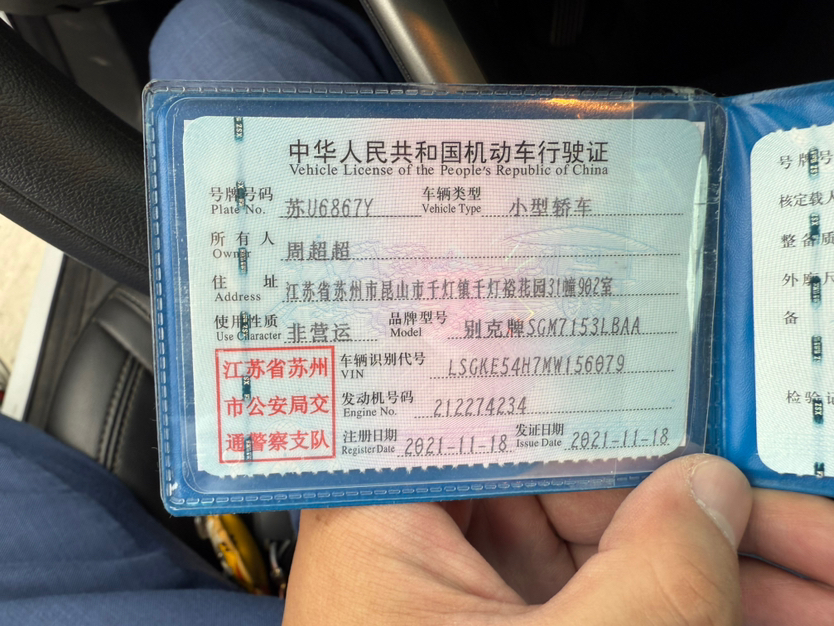 中华人民共和国机动车行驶证
Vehicle License of the People's Republic of China
号牌号码 苏U6867Y 车辆类型 小型轿车
Plate No. Vehicle Type
所有人 周超超
Owner
住址 江苏省苏州市昆山市千灯镇千灯裕花园31幢902室
Address
使用性质 非营运 品牌型号 别克牌SGM7153LBAA
Use Character Model
江苏省苏州
市公安局交
通警察支队
车辆识别代号 LSGKE54H7MW156079
VIN
发动机号码 212274234
Engine No.
注册日期 2021-11-18 发证日期 2021-11-18
Register Date Issue Date
号牌号
核定载人
整备质
外廓尺
备
检验记